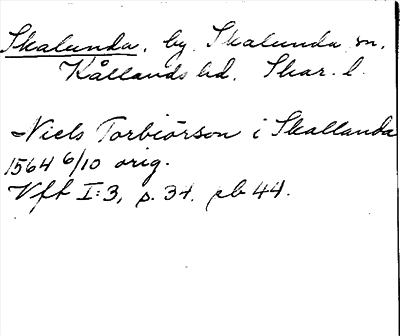 Skalunda, by, Skalunda sn,
Kållands hd. Skar. l.
Niels Torbiörson i Skallanda
1564 6/10 orig.
Vft I:3, s. 34. sb 44.